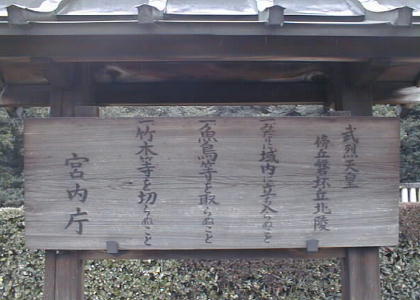 武烈天皇
傍丘磐坏丘北陵
一みだりに域内に立ち入らぬこと
一魚鳥等を取らぬこと
一竹木等を切らぬこと
宮内庁